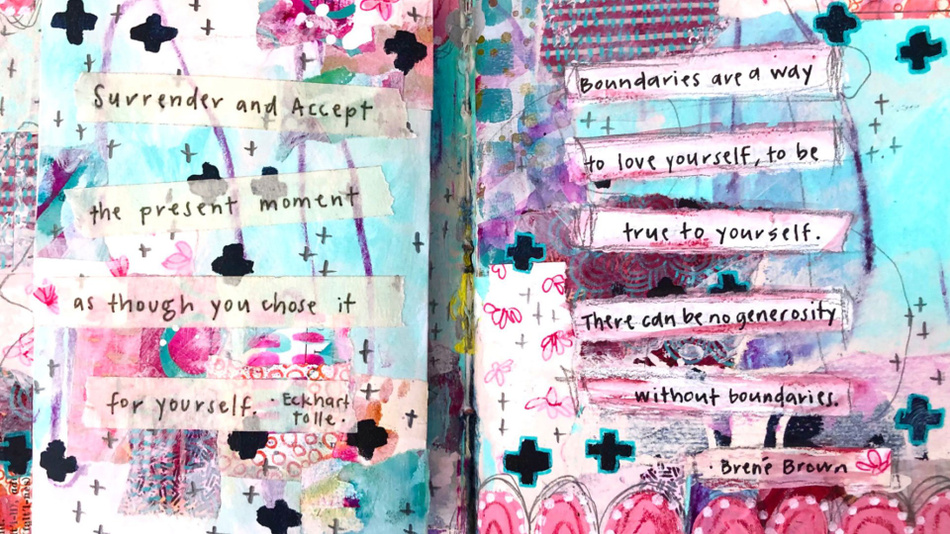 Surrender and Accept
the present moment
as though you chose it
for yourself. · Eckhart
Tolle.
Boundaries are a way
to love yourself, to be
true to yourself.
There can be no generosity
without boundaries.
· Brené Brown